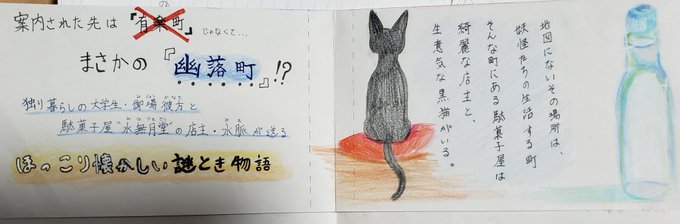 案内された先は『有楽町』じゃなくて…
まさかの『幽落町』!?
独り暮らしの大学生・御城彼方と
駄菓子屋"水無月堂"の店主・水脈が送る
ほっこり懐かしい謎とき物語
地図にないその場所は、
妖怪たちの生活する町
そんな町にある駄菓子屋は
綺麗な店主と、
生意気な黒猫がいる。